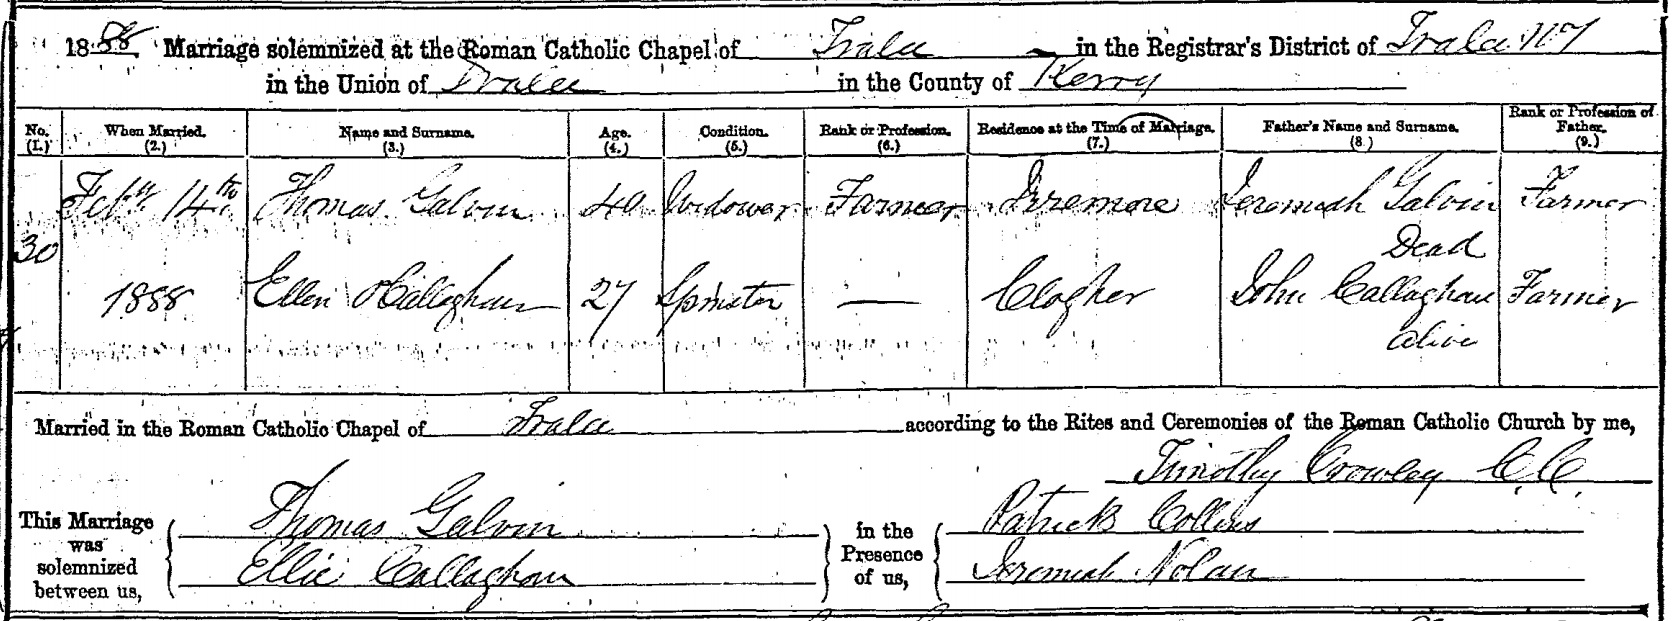 1888 Marriage solemnized at the Roman Catholic Chapel of Tralee in the Registrar's District of Tralee No 1
in the Union of Tralee in the County of Kerry
No. (1.) When Married. (2.) Name and Surname. (3.) Age. (4.) Condition. (5.) Rank or Profession. (6.) Residence at the Time of Marriage. (7.) Father's Name and Surname. (8.) Rank or Profession of Father. (9.)
Feby 14th Thomas Galvin 40 Widower Farmer Irremore Jeremiah Galvin Farmer
30 Dead
1888 Ellen O'Callaghan 27 Spinster — Clogher John Callaghan Farmer
alive
Married in the Roman Catholic Chapel of Tralee according to the Rites and Ceremonies of the Roman Catholic Church by me,
Timothy Crowley C.C.
This Marriage was solemnized between us, Thomas Galvin in the Presence of us, Patrick Collins
Ellie Callaghan Jeremiah Nolan